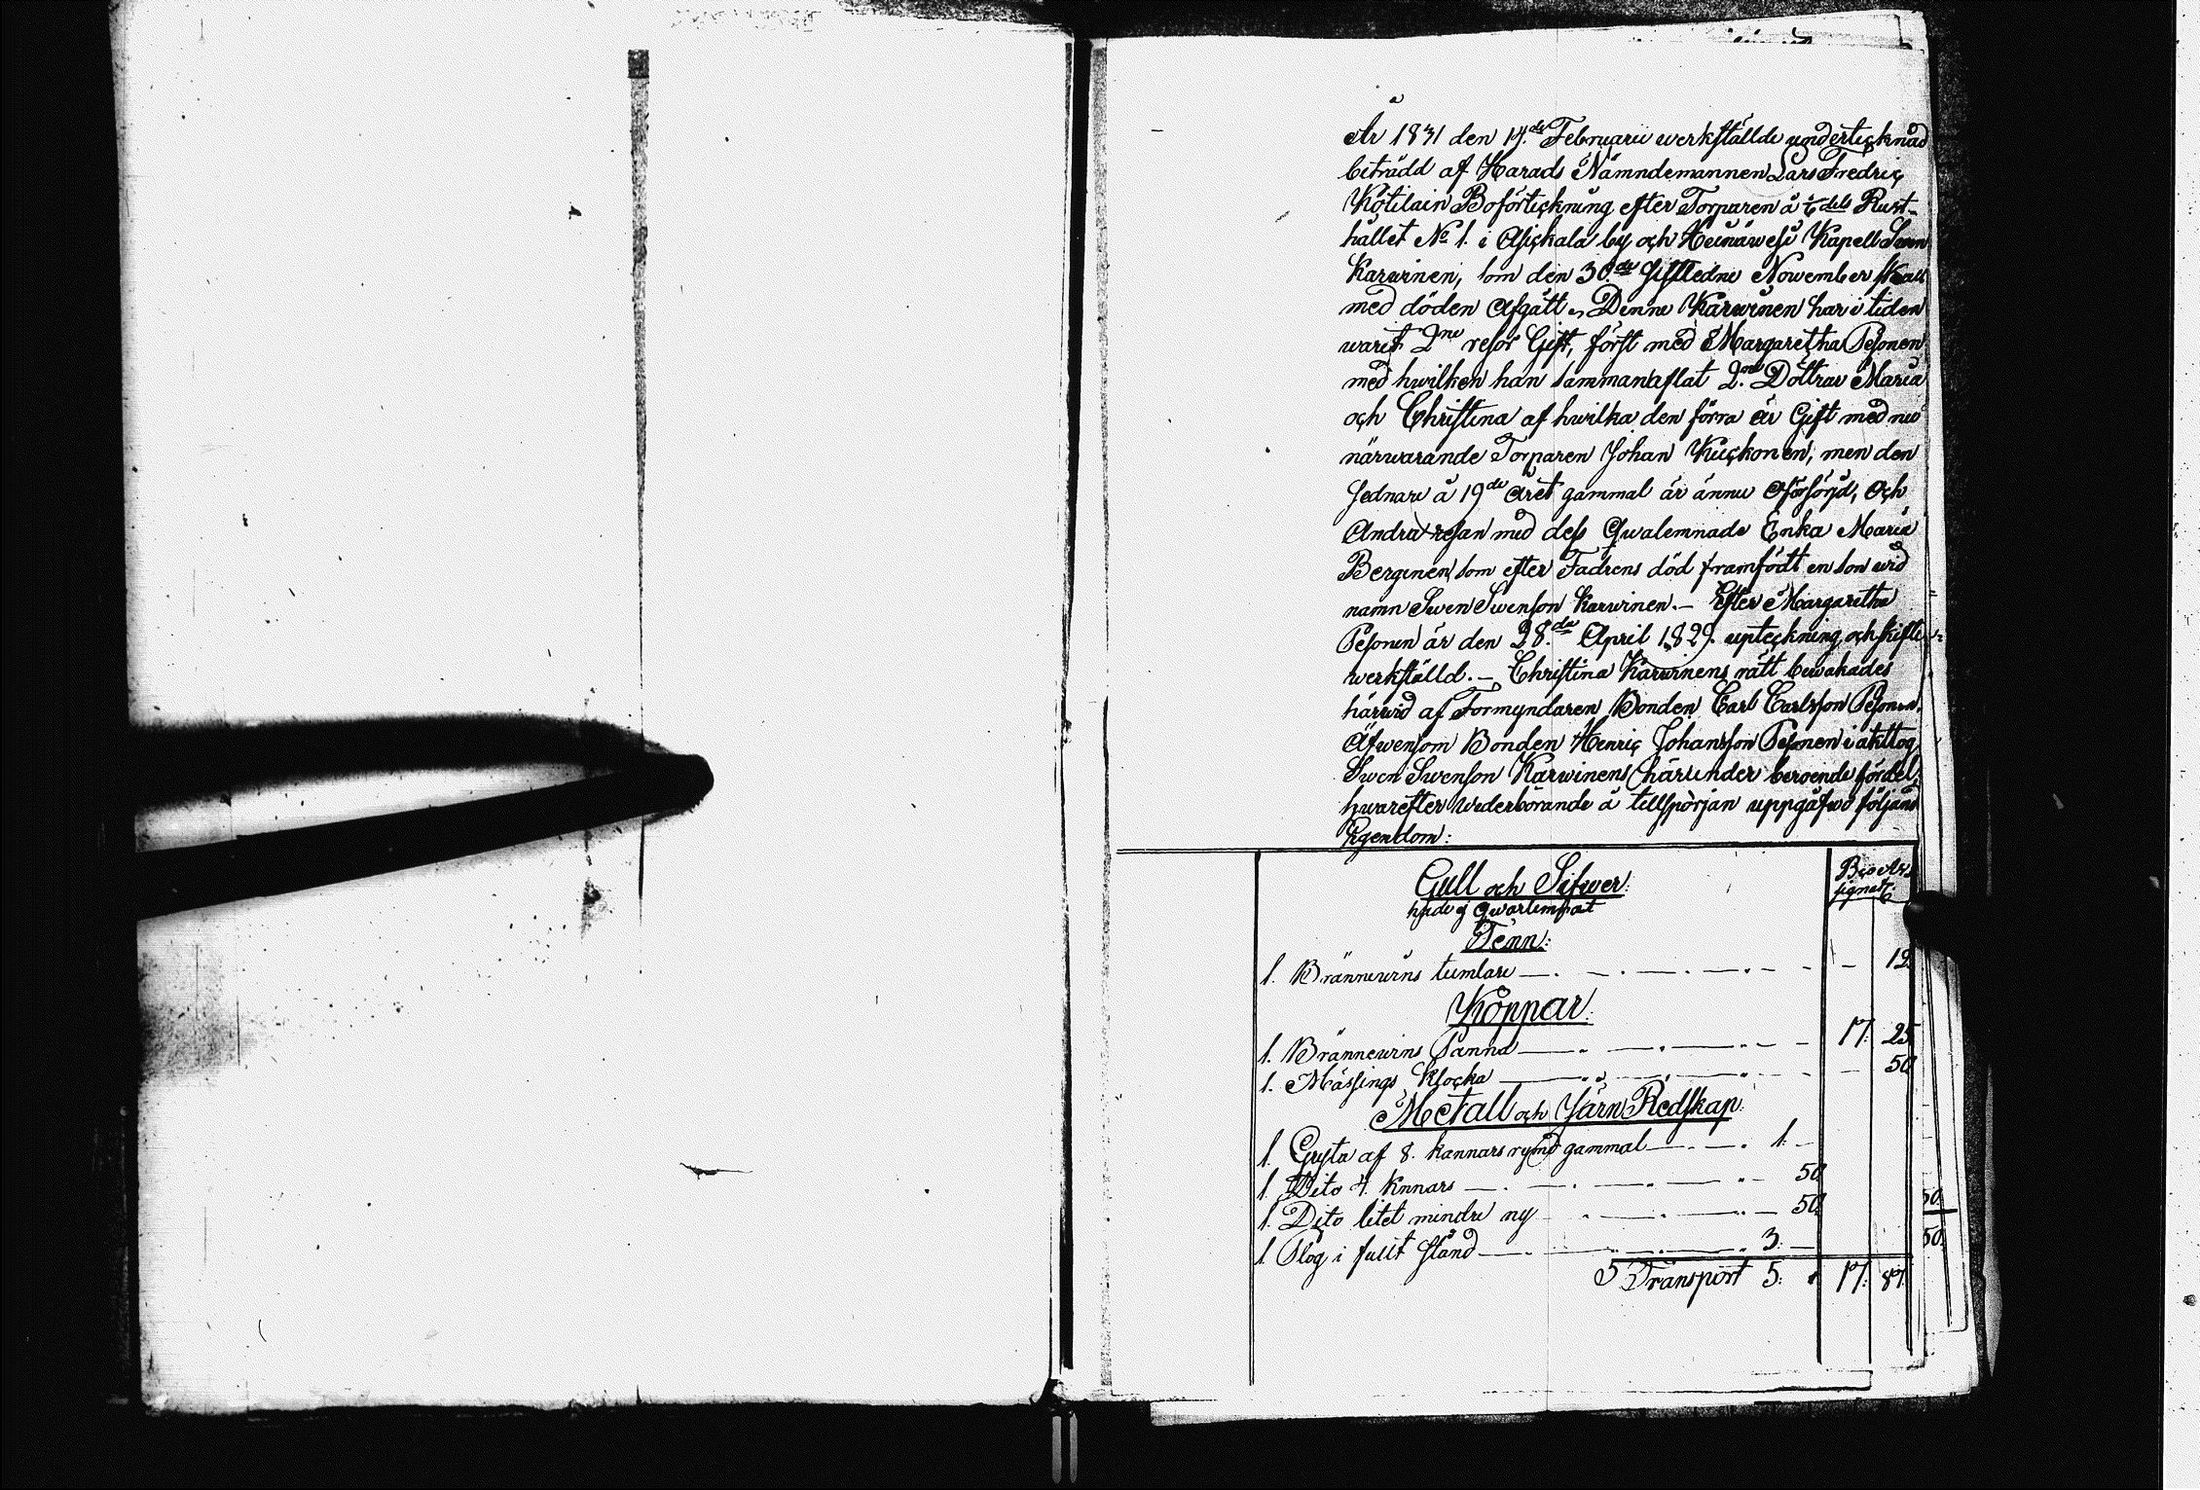 År 1831 den 14de Februarii werkstälde undertecknad
biträdd af Härads Nämndemannen Lars Fredric
Kötilain Boförtekning efter Torparen å 1/6 dels Rust-
hållet No 1. i Asickala by och Heinäwesi Kapell Swen
Karwinen, som den 30de sistledne November skall
med döden Afgått. Denne Karwinen har i tiden
warit 2ne resor Gift, först med Margaretha Pesonen
med hwilken han sammanaflat 2ne Döttrar Maria
och Christina af hwilka den förra är Gift med nu
närwarande Torparen Johan Kuckonen, men den
sednare å 19de året gammal är ännu oförsörjd, och
Andra resan med dess Qwalemnade Enka Maria
Berginen, som efter Fadrens död framfödt en son wid
namn Swen Swenson Karwinen. — Efter Margaretha
Pesonen är den 28de April 1829. upteckning och skifte
werkställd. — Christina Karwinens rätt bewakades
härwid af Formyndaren Bonden Carl Carlsson Pesonen.
Äfwensom Bonden Henric Johansson Pesonen i akttog
Swen Swenson Karwinens härunder beroende fördel,
hwarefter wederbörande å tillspörjan uppgåfwo följand
Egendom:
Gull och Silwer:
hade ej qwarlemnat
Tenn:
1. Bränneuins tumlare — 12.
Koppar:
1. Bränneuins Panna — 17. 25.
1. Mässings Klocka — 50.
Metall och Järn Redskap:
1. Gryta af 8. kannars rymd gammal — 1. —
1. Dito 4. knnars — 50.
1. Dito litet mindre ny — 50.
1. Plog i fullt stånd — 3. —
Transport 5. 17. 87.